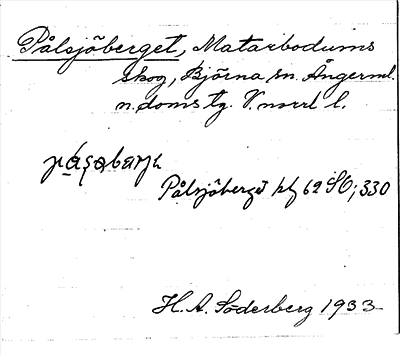 Pålsjöberget, Matarbodums
skog, Björna sn. Ångerml.
n. doms tg. V.norrl l.
Pålsjöberget 62 SO; 330
H. A. Söderberg 1933